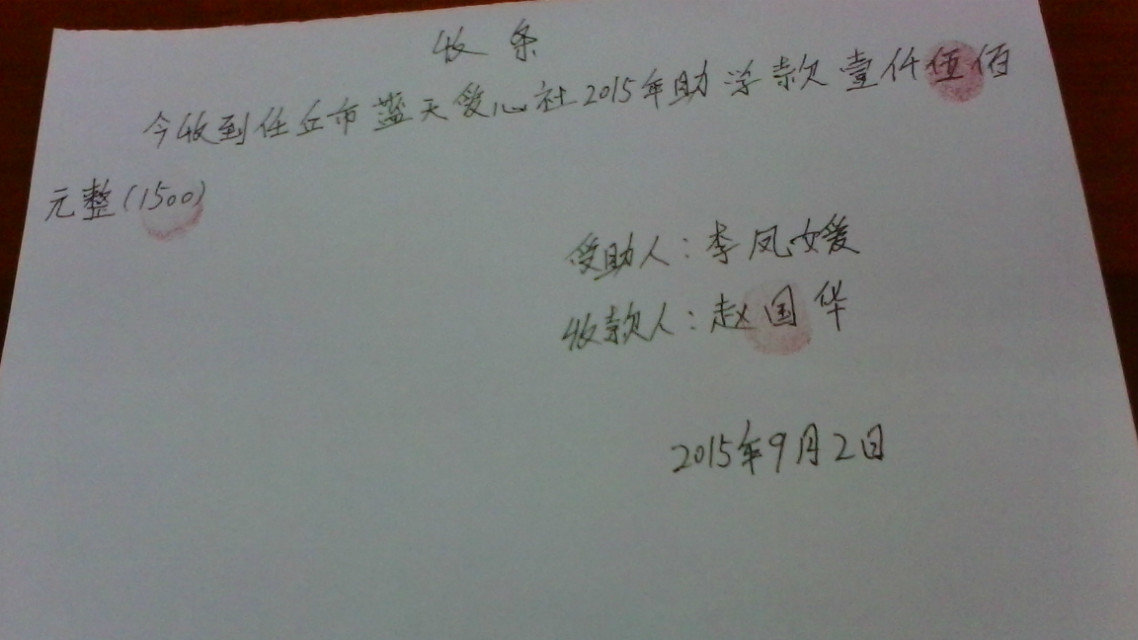 收条
今收到任丘市蓝天爱心社2015年助学款壹仟伍佰
元整(1500)
受助人:李凤媛
收款人:赵国华
2015年9月2日